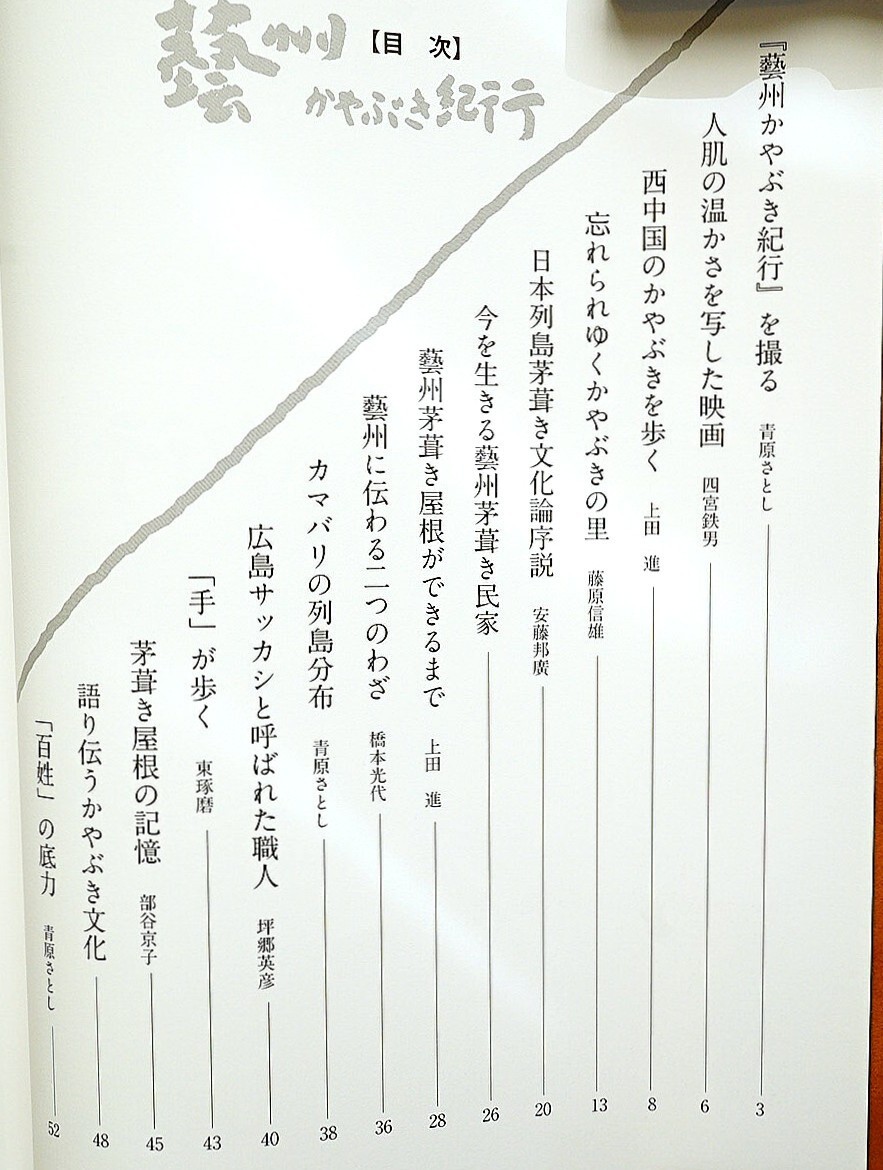 藝州
かやぶき紀行
【目 次】
『藝州かやぶき紀行』を撮る 青原さとし 3
人肌の温かさを写した映画 四宮鉄男 6
西中国のかやぶきを歩く 上田 進 8
忘れられゆくかやぶきの里 藤原信雄 13
日本列島茅葺き文化論序説 安藤邦廣 20
今を生きる藝州茅葺き民家 26
藝州茅葺き屋根ができるまで 上田 進 28
藝州に伝わる二つのわざ 橋本光代 36
カマバリの列島分布 青原さとし 38
広島サッカシと呼ばれた職人 坪郷英彦 40
「手」が歩く 東琢磨 43
茅葺き屋根の記憶 部谷京子 45
語り伝うかやぶき文化 48
「百姓」の底力 青原さとし 52